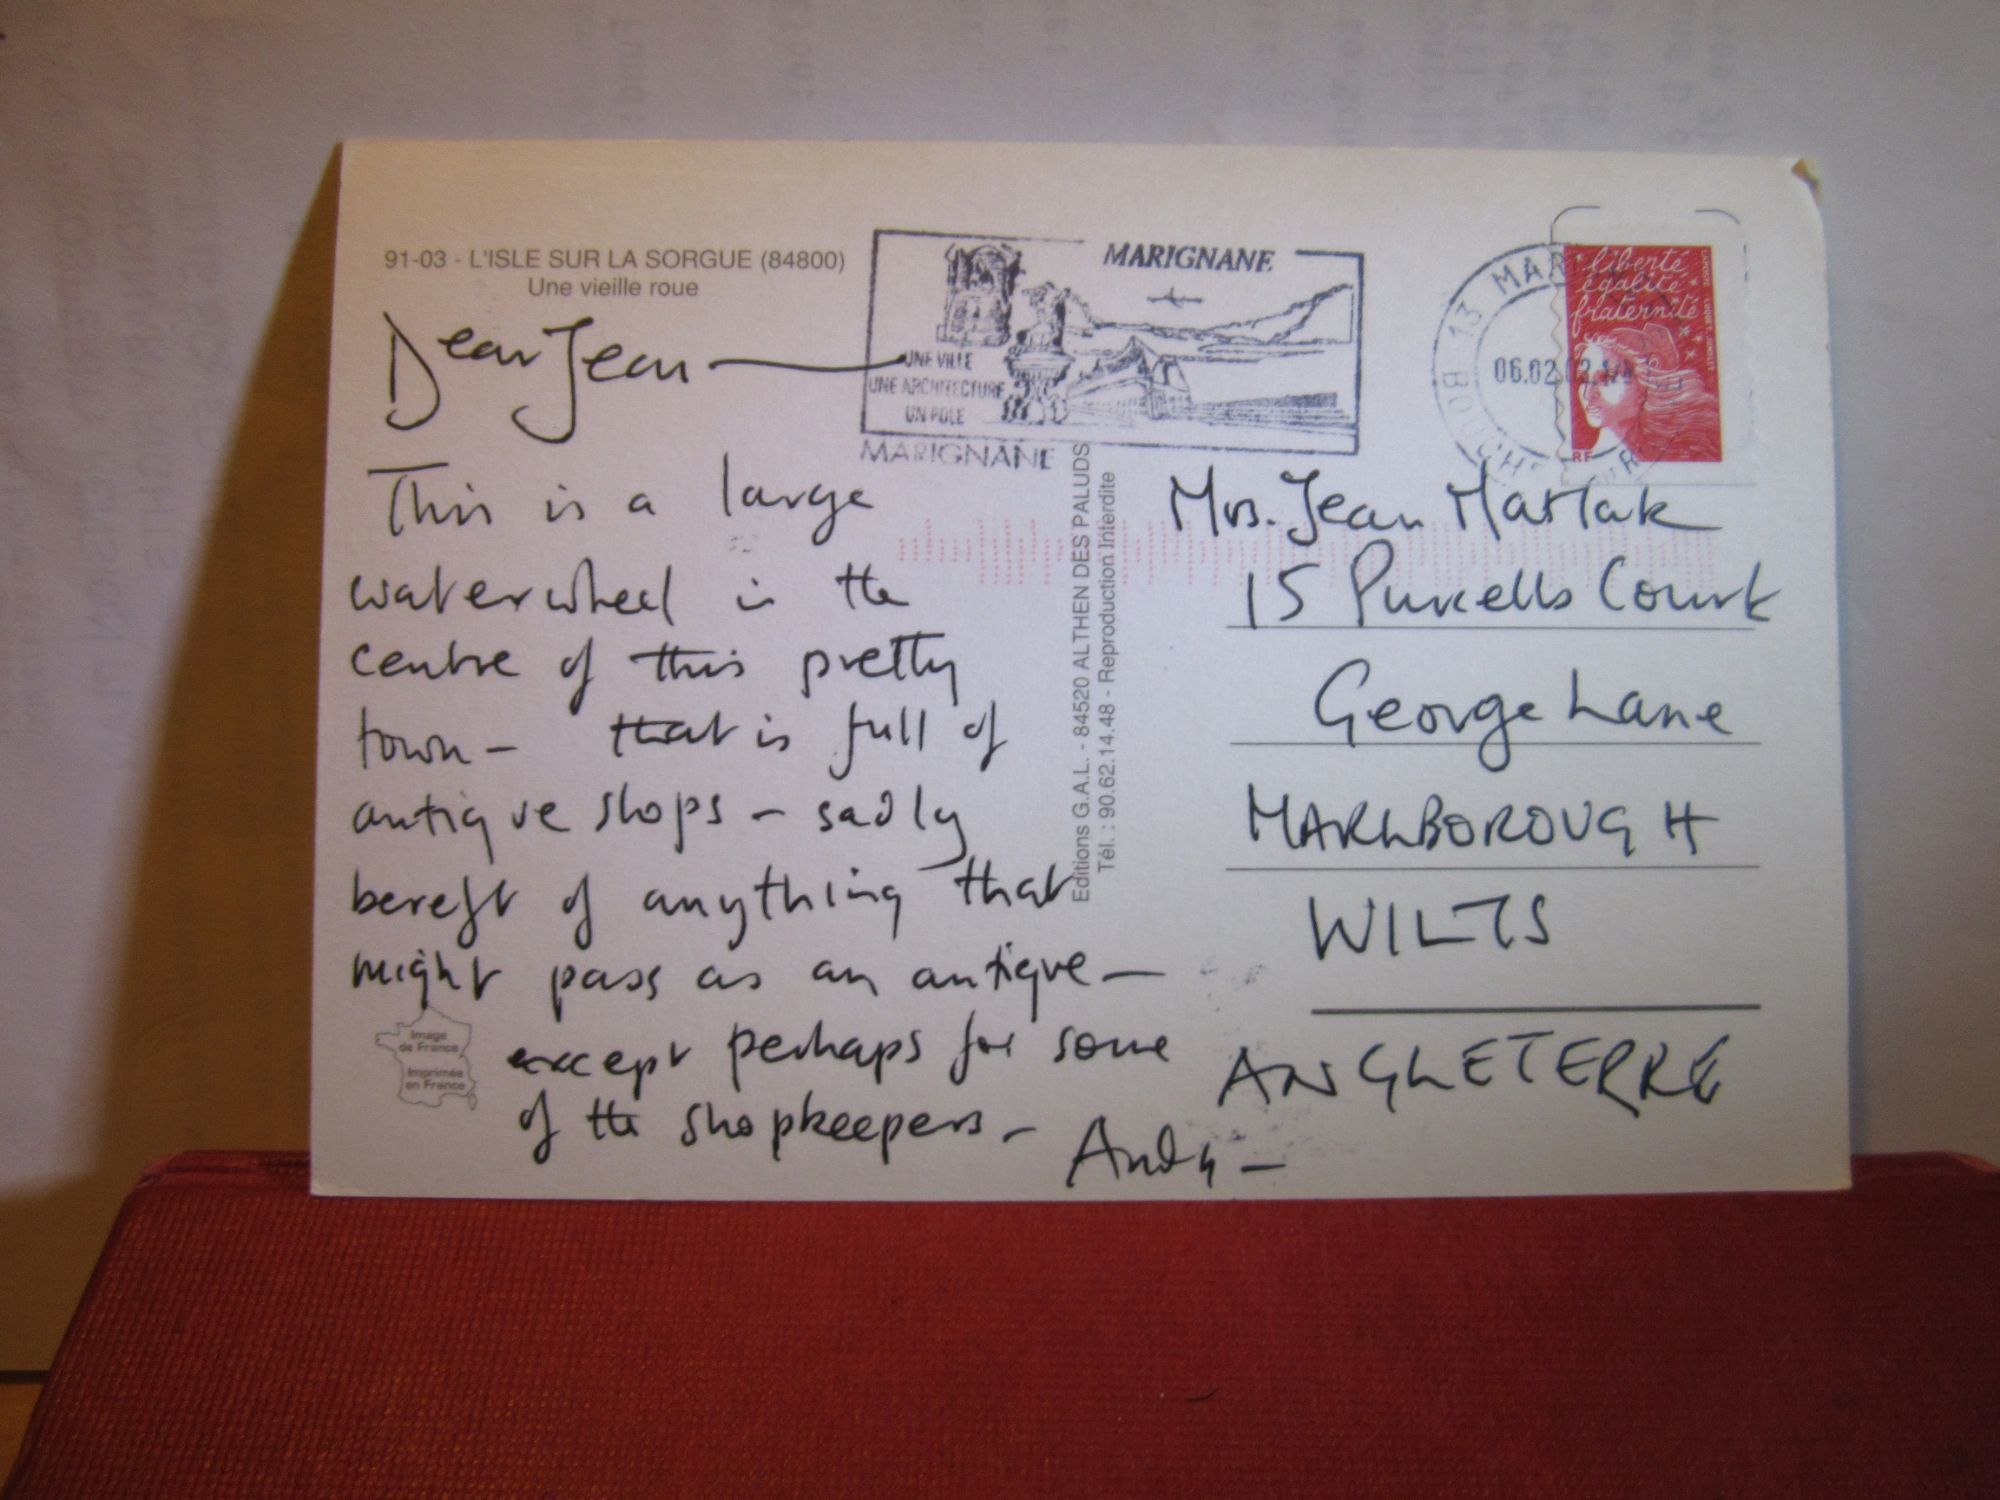 91-03 - L'ISLE SUR LA SORGUE (84800)
Une vieille roue
MARIGNANE
UNE VILLE
UNE ARCHITECTURE
UN POLE
MARIGNANE
13 MAR
06.02
BOUCH
liberté
égalité
fraternité
RF
Dear Jean —
This is a large
waterwheel in the
centre of this pretty
town – that is full of
antique shops – sadly
bereft of anything that
might pass as an antique –
except perhaps for some
of the shopkeepers –
Andy –
Image
de France
Imprimée
en France
Editions G.A.L. - 84520 ALTHEN DES PALUDS
Tél. : 90.62.14.48 - Reproduction Interdite
Mrs. Jean
15 Purcells Court
George Lane
MARLBOROUGH
WILTS
ANGLETERRE